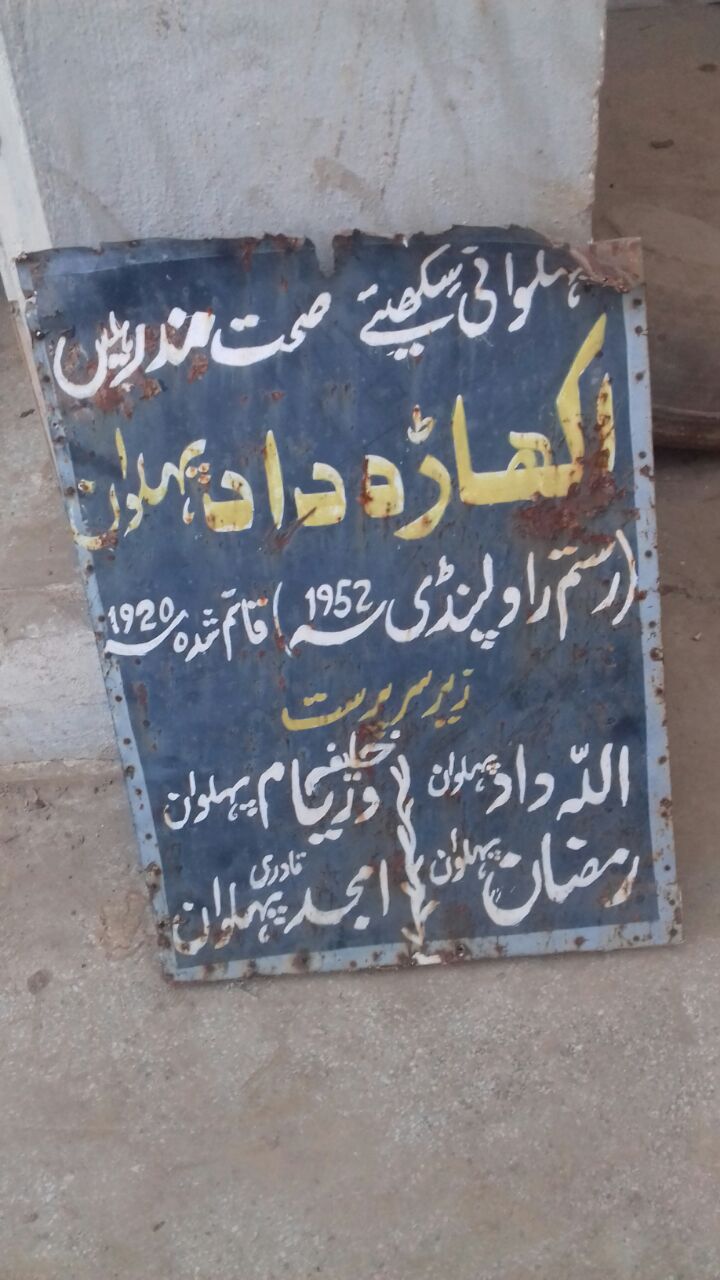 پہلوانی سیکھیئے صحت مند رہیں
اکھاڑہ داد پہلوان
(رستم راولپنڈی 1952ء) قائم شدہ 1920ء
زیر سرپرست
اللہ داد پہلوان خلیفہ وریام پہلوان
رمضان پہلوان امجد قادری پہلوان